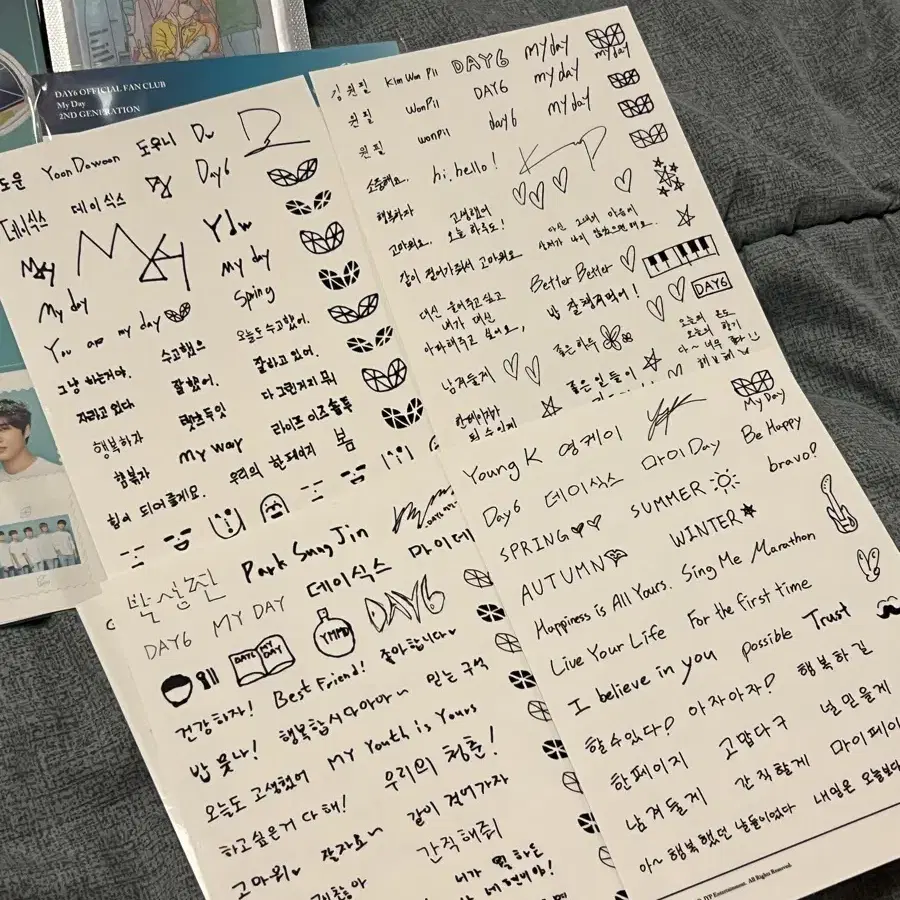 DAY6 OFFICIAL FAN CLUB
My Day
2ND GENERATION
도운 Yoon Dowoon 도우니 Du
데이식스 데이식스 Day6
My Day
Ydw
My day My day
You are my day Spring
그냥 하는거야. 수고했으 오늘도 수고했어.
자라고 있다 잘했어. 잘하고 있어.
행복하자 렛츠두잇 다 그런거지 뭐
행복자 my way 라이프 이즈 숏투
힘이 되어 줄게요. 우리의 한페이지 봄
김원필 Kim Won Pil DAY6 my day my day
원필 WonPil DAY6 my day
원필 wonpil day6 my day
소중해요. hi, hello!
행복하자 고생했어 오늘 하루도!
고마워요.
같이 걸어가줘서 고마워요
당신, 그대의 마음이
상처가 나지 않았으면 해요.
대신 울어주고 싶고
내가 대신
아파해주고 싶어요,
Better Better
밥 잘 챙겨먹어!
DAY6
남겨둘게 좋은하루
오늘의 온도
오늘의 향기
다~ 너무 좋다
한페이지가
될 수 있게
좋은 일들이
박성진 Park Sung Jin
DAY6 MY DAY 데이식스 마이데
DAY6 MY DAY YMMD DAY6
건강하자! Best Friend! 좋아합니다
밥 묵나! 행복합시다아아~ 믿는 구석
오늘도 고생했어 MY Youth is Yours
하고싶은거 다 해! 우리의 청춘!
고마워 잘자요~ 같이 걸어가자
괜찮아 간직해줘
네가 뭘 하든
Young K 영케이 My Day
Day6 데이식스 마이 Day Be Happy
SPRING SUMMER bravo!
AUTUMN WINTER
Happiness is All Yours. Sing Me Marathon
Live Your Life For the first time
I believe in you possible Trust
할 수 있다! 아자아자! 행복하길
한페이지 고맙다구 널 믿을게
남겨둘게 간직할게 마이페이
아~ 행복했던 날들이었다 내일은 오늘보다
JYP Entertainment. All Rights Reserved.